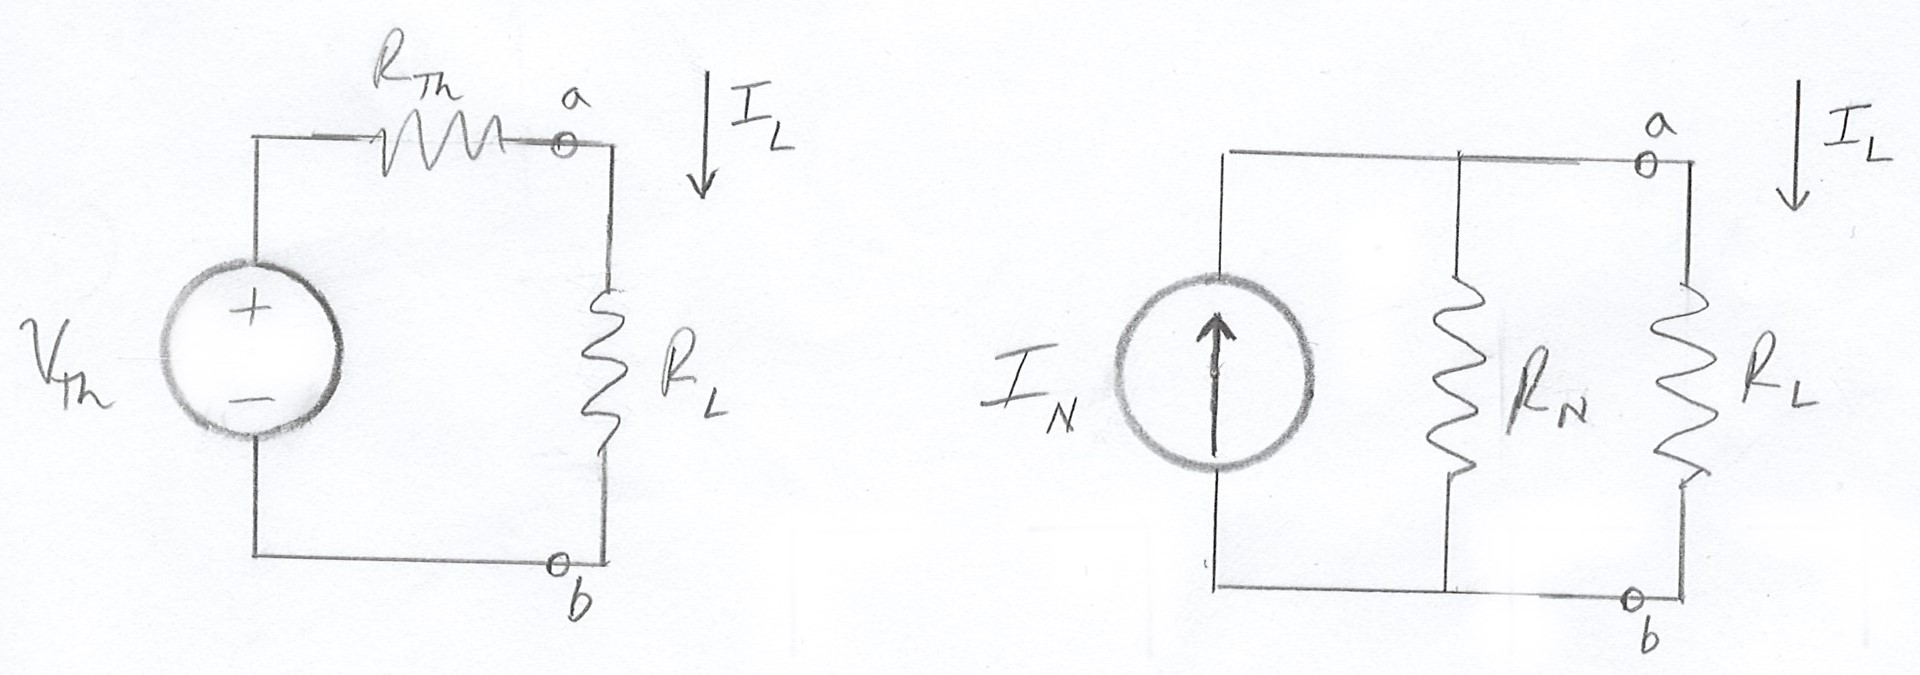 R_Th
a
I_L
+
V_Th
−
R_L
b
a
I_L
I_N
R_N
R_L
b